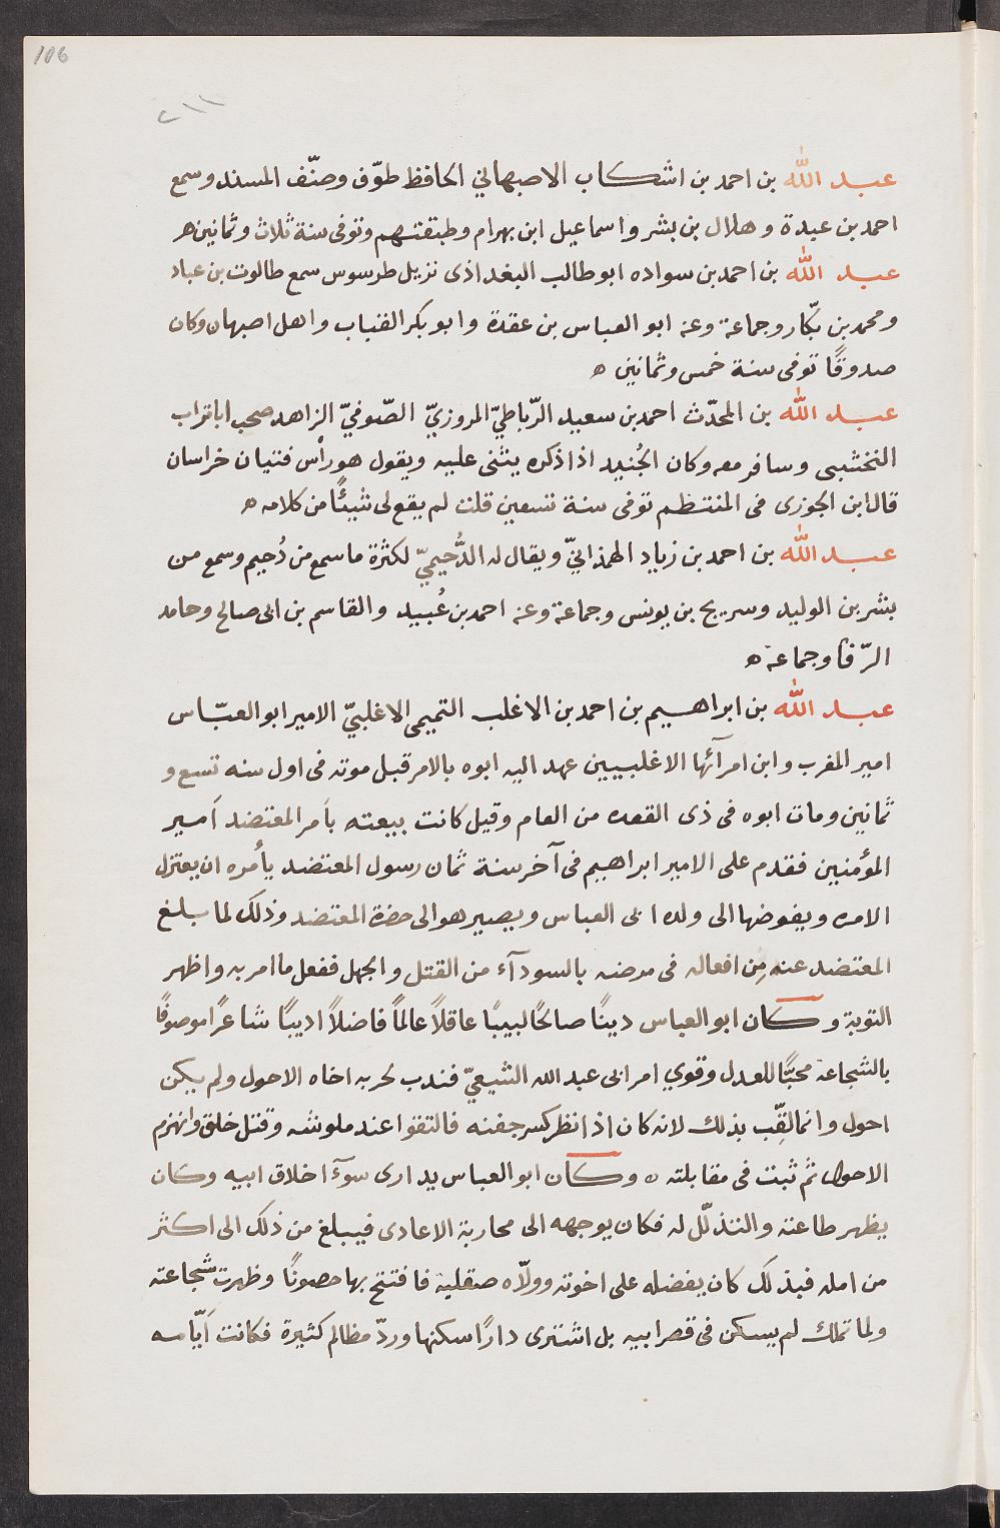 106
٢١١
عبد الله بن احمد بن اشكاب الاصبهاني الحافظ طوّف وصنّف المسند وسمع
احمد بن عبدة وهلال بن بشر واسماعيل ابن بهرام وطبقتهم وتوفى سنة ثلاث وثمانين ه
عبد الله بن احمد بن سواده ابو طالب البغداذى نزيل طرسوس سمع طالوت بن عباد
ومحمد بن بكّار وجماعة وعنه ابو العباس بن عقدة وابو بكر القباب واهل اصبهان وكان
صدوقًا توفى سنة خمس وثمانين ه
عبد الله بن المحدّث احمد بن سعيد الرّباطيّ المروزيّ الصّوفيّ الزاهد صحب اباتراب
النخشبى وسافر معه وكان الجُنيد اذا ذكره يثنى عليه ويقول هو رأس فتيان خراسان
قال ابن الجوزى فى المنتظم توفى سنة تسعين قلت لم يقع لى شيئًا من كلامه ه
عبد الله بن احمد بن زياد الهمذانيّ ويقال له الدُّحيميّ لكثرة ما سمع من دُحيم وسمع من
بشر بن الوليد وسريج بن يونس وجماعة وعنه احمد بن عُبيد والقاسم بن ابى صالح وحامد
الرّفا وجماعة ه
عبد الله بن ابراهيم بن احمد بن الاغلب التميمى الاغلبيّ الامير ابو العبّاس
امير المغرب وابن امرآئها الاغلبيين عهد اليه ابوه بالامر قبل موته فى اول سنه تسع و
ثمانين ومات ابوه فى ذى القعده من العام وقيل كانت بيعته بأمر المعتضد أمير
المؤمنين فقدم على الامير ابراهيم فى آخر سنة ثمان رسول المعتضد يأمره ان يعتزل
الامره ويفوضها الى ولده ابى العباس ويصير هو الى حضرة المعتضد وذلك لما بلغ
المعتضد عنه مِن افعاله فى مرضه بالسودآء من القتل والجهل ففعل ما امر به واظهر
التوبة وكان ابو العباس دينًا صالحًا لبيبًا عاقلاً عالمًا فاضلاً اديبًا شاعرًا موصوفًا
بالشجاعة محبًّا للعدل وقوي امر ابى عبد الله الشيعيّ فندب لحربه اخاه الاحول ولم يكن
احول وانما لقِّب بذلك لانه كان اذا نظر كسر جفنه فالتقوا عند ملوشه وقتل خلق وانهزم
الاحول ثم ثبت فى مقابلته ه وكان ابو العباس يدارى سوءَ اخلاق ابيه وكان
يظهر طاعته والتذلّل له فكان يوجهه الى محاربة الاعادى فيبلغ من ذلك الى اكثر
من امله فبذلك كان يفضله على اخوته وولّاه صقلية فافتتح بها حصونًا وظهرت شجاعته
ولما تملك لم يسكن فى قصر ابيه بل اشترى دارًا سكنها وردّ مظالم كثيرة فكانت أيّامه